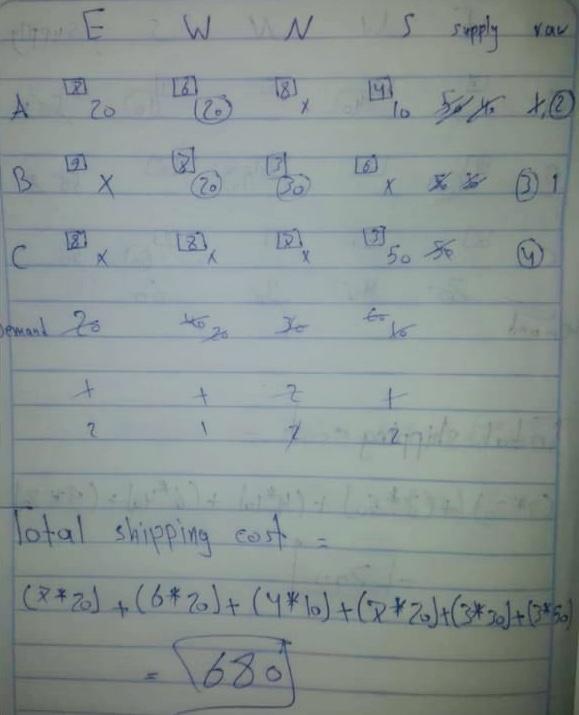 E W N S supply rav
A 7 20 6 20 8 x 4 10 50 40 1, 2
B 9 x 7 20 3 30 6 x 50 30 3 1
C 8 x 8 x 5 x 3 50 50 4
Demand 20 40 20 30 60 10
1 1 2 1
2 1 2
Total shipping cost =
(7*20) + (6*20) + (4*10) + (7*20) + (3*30) + (3*50)
= 680